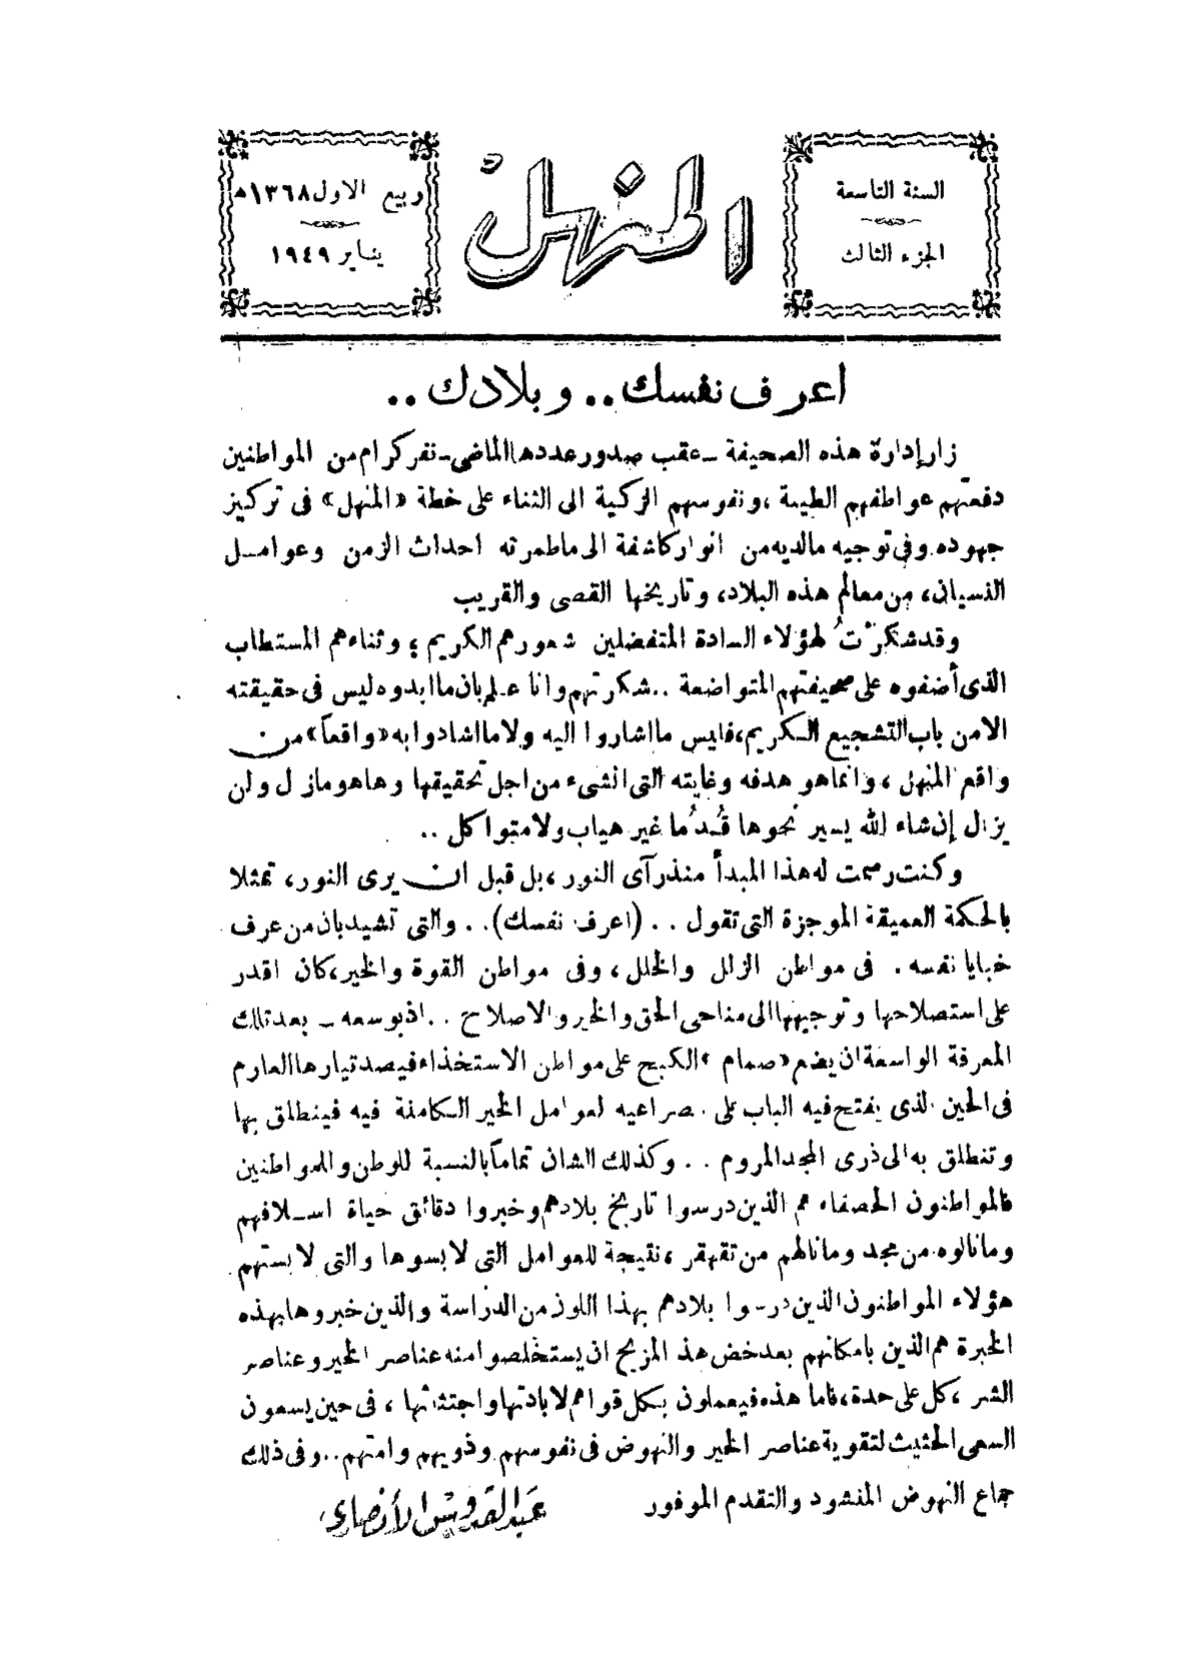 السنة التاسعة
الجزء الثالث
المنهل
ربيع الاول ١٣٦٨ﻫ
يناير ١٩٤٩
اعرف نفسك .. وبلادك ..
زار إدارة هذه الصحيفة ــ عقب صدور عددها الماضى ــ نفر كرام من المواطنين
دفعتهم عواطفهم الطيبة ، ونفوسهم الزكية الى الثناء على خطة «المنهل» فى تركيز
جهوده وفى توجيه مالديه من انوار كاشفة الى ما طمرته احداث الزمن وعوامل
النسيان، من معالم هذه البلاد، وتاريخها القصى والقريب
وقد شكرْتُ لهؤلاء السادة المتفضلين شعورهم الكريم ؛ وثناءهم المستطاب
الذى أضفوه على صحيفتهم المتواضعة .. شكرتهم وانا علم بان ما ابدوه ليس فى حقيقته
الا من باب التشجيع الكريم، فليس ما اشاروا اليه ولا ما اشادوا به «واقعاً» من
واقع المنهل ، وانما هو هدفه وغايته التى انشىء من اجل تحقيقها وها هو مازال ولن
يزال إن شاء الله يسير نحوها قُدُما غير هياب ولا متواكل ..
وكنت رسمت له هذا المبدأ منذ رآى النور ، بل قبل ان يرى النور ، تمثلا
بالحكمة العميقة الموجزة التى تقول .. (اعرف نفسك) .. والتى تشيد بان من عرف
خبايا نفسه . فى مواطن الزلل والخلل ، وفى مواطن القوة والخير، كان اقدر
على استصلاحها وتوجيهها الى مناحى الحق والخير والاصلاح .. اذ بوسعه ــ بعد تلك
المعرفة الواسعة ان يضع «صمام» الكبح على مواطن الاستخذاء فيصد تيارها العارم
فى الحين الذى يفتح فيه الباب على مصراعيه لعوامل الخير الكامنة فيه فينطلق بها
وتنطلق به الى ذرى المجد المروم .. وكذلك الشان تماماً بالنسبة للوطن والمواطنين
فالمواطنون الحصفاء هم الذين درسوا تاريخ بلادهم وخبروا دقائق حياة اسلافهم
وما نالوه من مجد وما نالهم من تقهقر ، نتيجة للعوامل التى لابسوها والتى لابستهم
هؤلاء المواطنون الذين درسوا بلادهم بهذا اللون من الدراسة والذين خبروها بهذه
الخبرة هم الذين بامكانهم بعد خض هذ المزيج ان يستخلصوا منه عناصر الخير وعناصر
الشر ، كل على حدة، فاما هذه فيعملون بكل قواهم لابادتها واجتثاثها ، فى حين يسعون
السعى الحثيث لتقوية عناصر الخير والنهوض فى نفوسهم وذويهم وامتهم .. وفى ذلك
جماع النهوض المنشود والتقدم الموفور
عبد القدوس الأنصارى